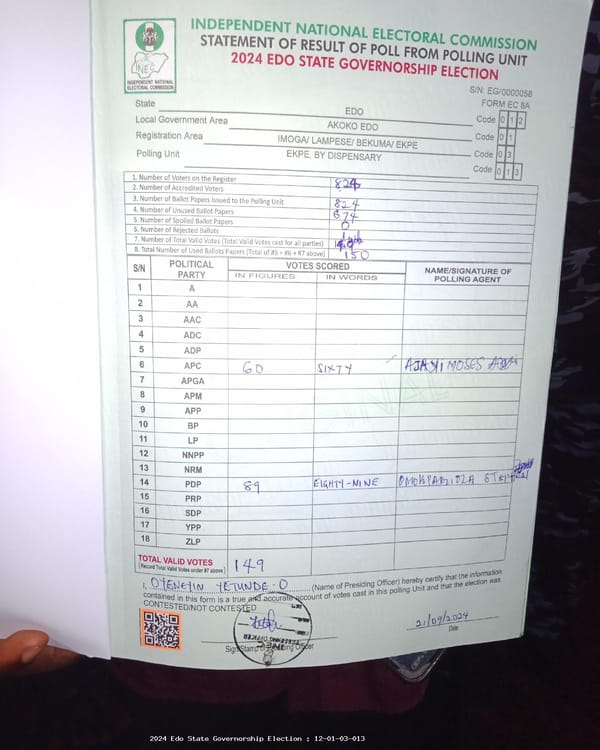 INDEPENDENT NATIONAL ELECTORAL COMMISSION
STATEMENT OF RESULT OF POLL FROM POLLING UNIT
2024 EDO STATE GOVERNORSHIP ELECTION
INEC
INDEPENDENT NATIONAL ELECTORAL COMMISSION
S/N: EG/0000058
FORM EC 8A
State EDO Code 0 1 2
Local Government Area AKOKO EDO Code 0 1
Registration Area IMOGA/ LAMPESE/ BEKUMA/ EKPE Code 0 3
Polling Unit EKPE, BY DISPENSARY Code 0 1 3
1. Number of Voters on the Register 824
2. Number of Accredited Voters
3. Number of Ballot Papers Issued to the Polling Unit 824
4. Number of Unused Ballot Papers 674
5. Number of Spoiled Ballot Papers 0
6. Number of Rejected Ballots
7. Number of Total Valid Votes (Total Valid Votes cast for all parties)
8. Total Number of Used Ballots Papers (Total of #5 + #6 + #7 above) 150
S/N POLITICAL PARTY VOTES SCORED NAME/SIGNATURE OF POLLING AGENT
IN FIGURES IN WORDS
1 A
2 AA
3 AAC
4 ADC
5 ADP
6 APC 60 SIXTY AJAYI MOSES
7 APGA
8 APM
9 APP
10 BP
11 LP
12 NNPP
13 NRM
14 PDP 89 EIGHTY-NINE
15 PRP
16 SDP
17 YPP
18 ZLP
TOTAL VALID VOTES 149
(Record Total Valid Votes under #7 above)
I, OYENEYIN YETUNDE. O (Name of Presiding Officer) hereby certify that the information
contained in this form is a true and accurate account of votes cast in this polling Unit and that the election was
CONTESTED/NOT CONTESTED
21/09/2024
Sign/Stamp of Presiding Officer
Date
2024 Edo State Governorship Election : 12-01-03-013